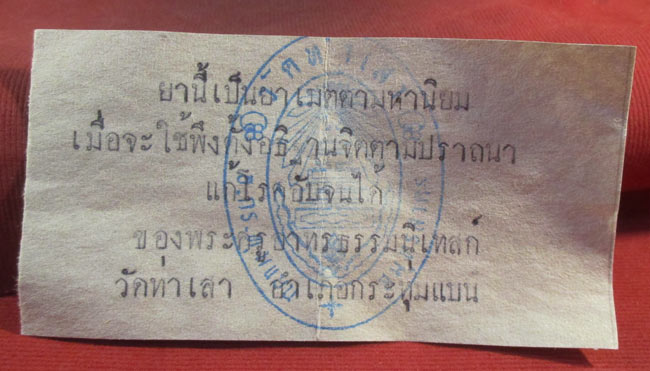 ยานี้เป็นยาเมตตามหานิยม
เมื่อจะใช้พึงตั้งอธิฐานจิตตามปราถนา
แก้โรคอับจนได้
ของพระครูสาทรธรรมนิเทสก์
วัดท่าเสา อำเภอกระทุ่มแบน
วัดท่าเสา